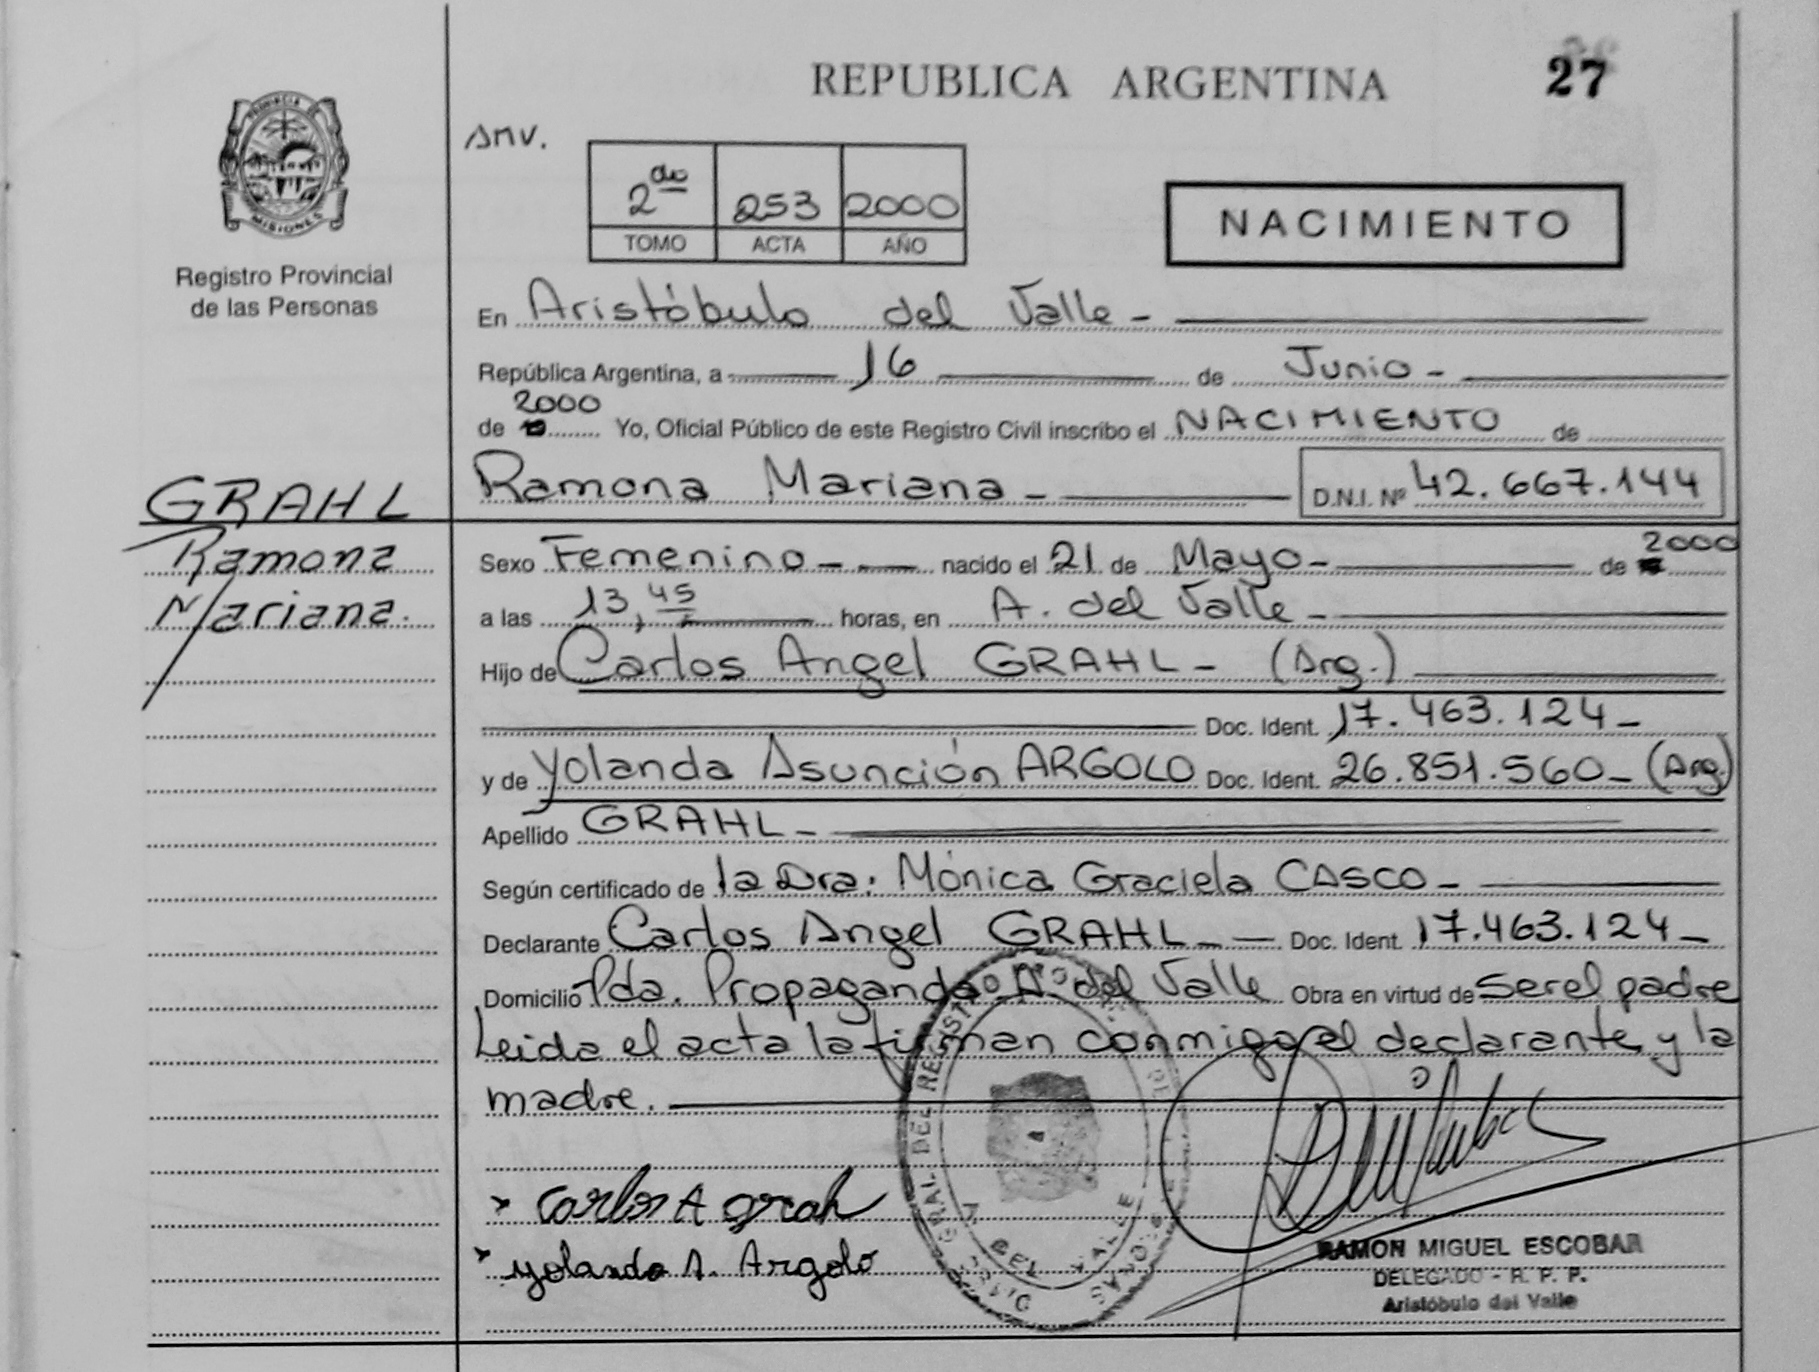 REPUBLICA ARGENTINA
27
PROVINCIA DE
MISIONES
Registro Provincial
de las Personas
AMV.
2do 253 2000
TOMO ACTA AÑO
NACIMIENTO
En Aristóbulo del Valle -
República Argentina, a 16 de Junio -
2000
de Yo, Oficial Público de este Registro Civil inscribo el NACIMIENTO de
Ramona Mariana - D.N.I. Nº 42.667.144
GRAHL
Ramona
Mariana.
2000
Sexo Femenino - nacido el 21 de Mayo - de
a las 13,45 horas, en A. del Valle -
Hijo de Carlos Angel GRAHL - (Arg.)
Doc. Ident. 17.463.124 -
y de Yolanda Asunción ARGOLO Doc. Ident. 26.851.560 - (Arg.)
Apellido GRAHL -
Según certificado de la Dra: Mónica Graciela CASCO -
Declarante Carlos Angel GRAHL - Doc. Ident. 17.463.124 -
Domicilio Pda. Propaganda A. del Valle Obra en virtud de ser el padre
Leida el acta la firman conmigo el declarante y la
madre.
Carlos A grah
Yolanda A. Argolo
RAMON MIGUEL ESCOBAR
DELEGADO - R. P. P.
Aristóbulo del Valle